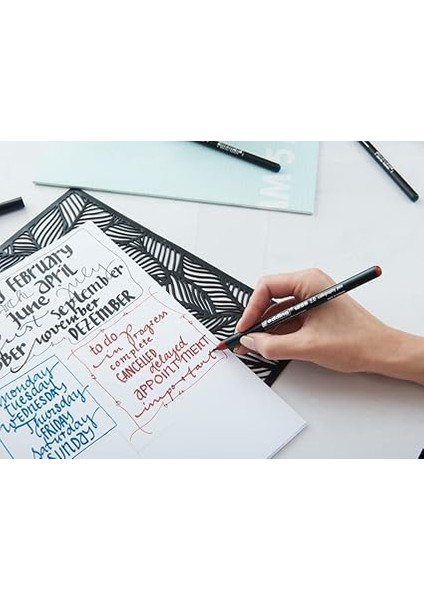 FEBRUARY
April
June
July
September
november
DEZEMBER
to do
in progress
complete
CANCELLED
delayed
APPOINTMENT
important
monday
TUESDAY
WEDNESDAY
Thursday
FRIDAY
saturday
SUNDAY
edding 1255 2.0 calligraphy pen